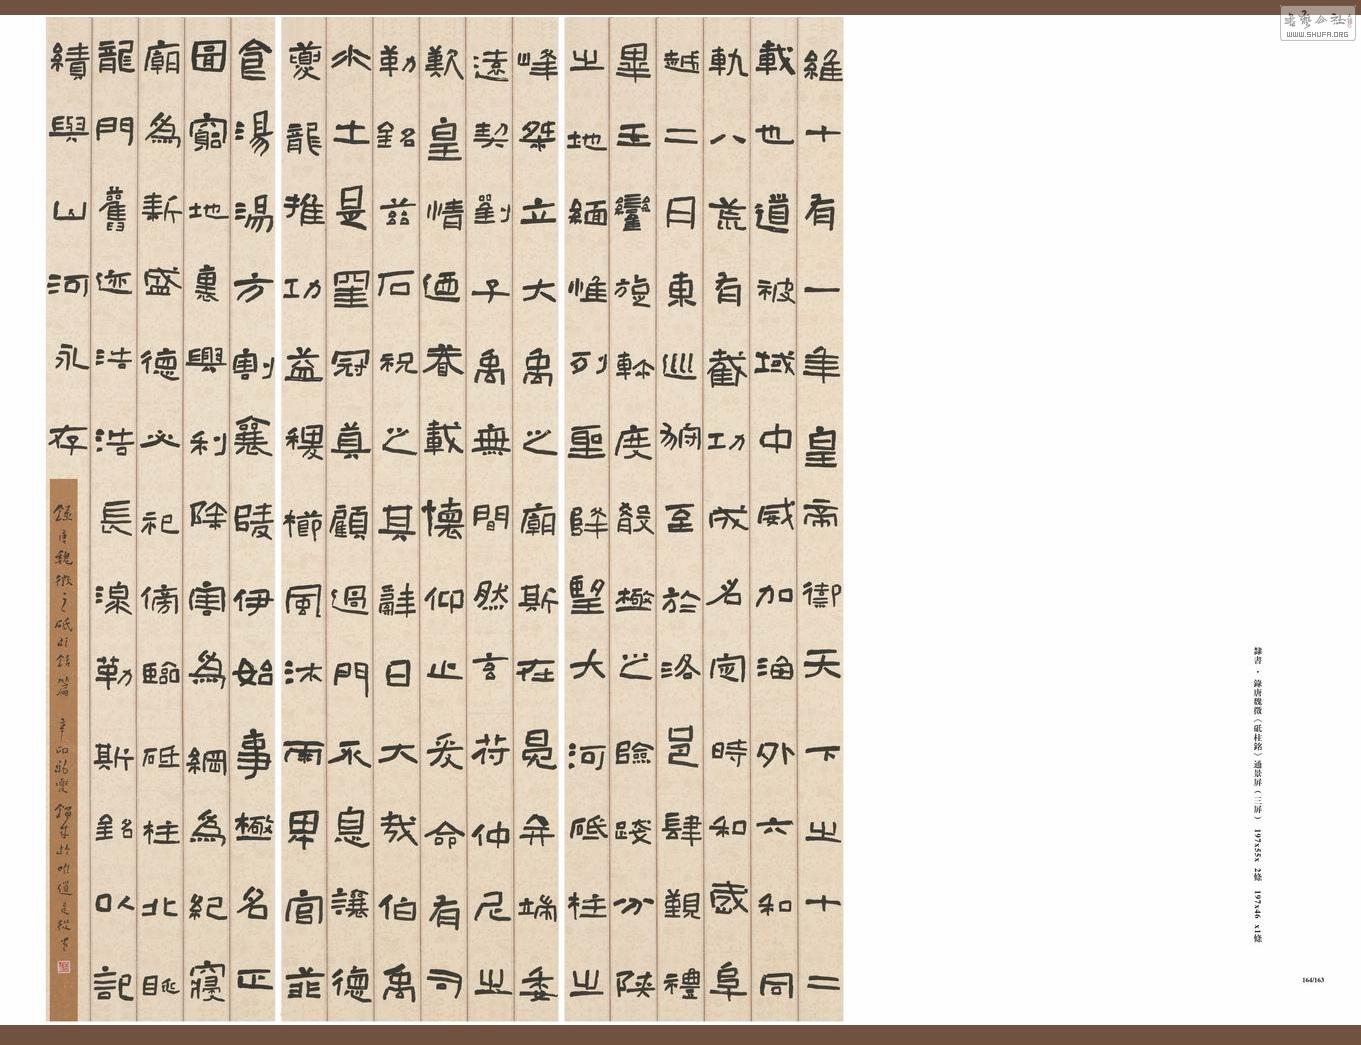 維十有一年皇帝御天下之十二
載也道被域中威加海外六和同
軌八荒有截功成名定時和感阜
越二月東巡狩至於洛邑肆覲禮
畢玉鑾旋軫度殽極之險踐分陝
之地緬惟列聖降望大河砥柱之
峰桀立大禹之廟斯在晃弁端委
遠契劉子禹無間然玄符仲尼之
歎皇情迺眷載懷仰止爰命有司
勒銘茲石祝之其辭曰大哉伯禹
水土是單冠莫顧過門不息讓德
夔龍推功益稷櫛風沐雨卑宮菲
食湯湯方割襄陵伊始事極名正
圖窮地裏興利除害為綱為紀寢
廟為新盛德必祀傍臨砥柱北眺
龍門舊迹浩浩長湶勒斯銘以記
績與山河永存
錄唐魏徵之砥柱銘篇 辛卯
隸書·錄唐魏徵《砥柱銘》通景屏（三屏） 197x55x 2條 197x46 x1條
164/163
書藝公社
WWW.SHUFA.ORG